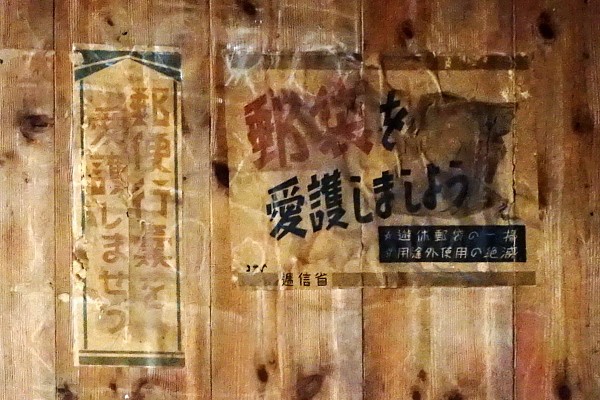 郵便行嚢を
愛護しませう
郵袋を
愛護しましょう
遊休郵袋の一掃
用途外使用の絶滅
逓信省